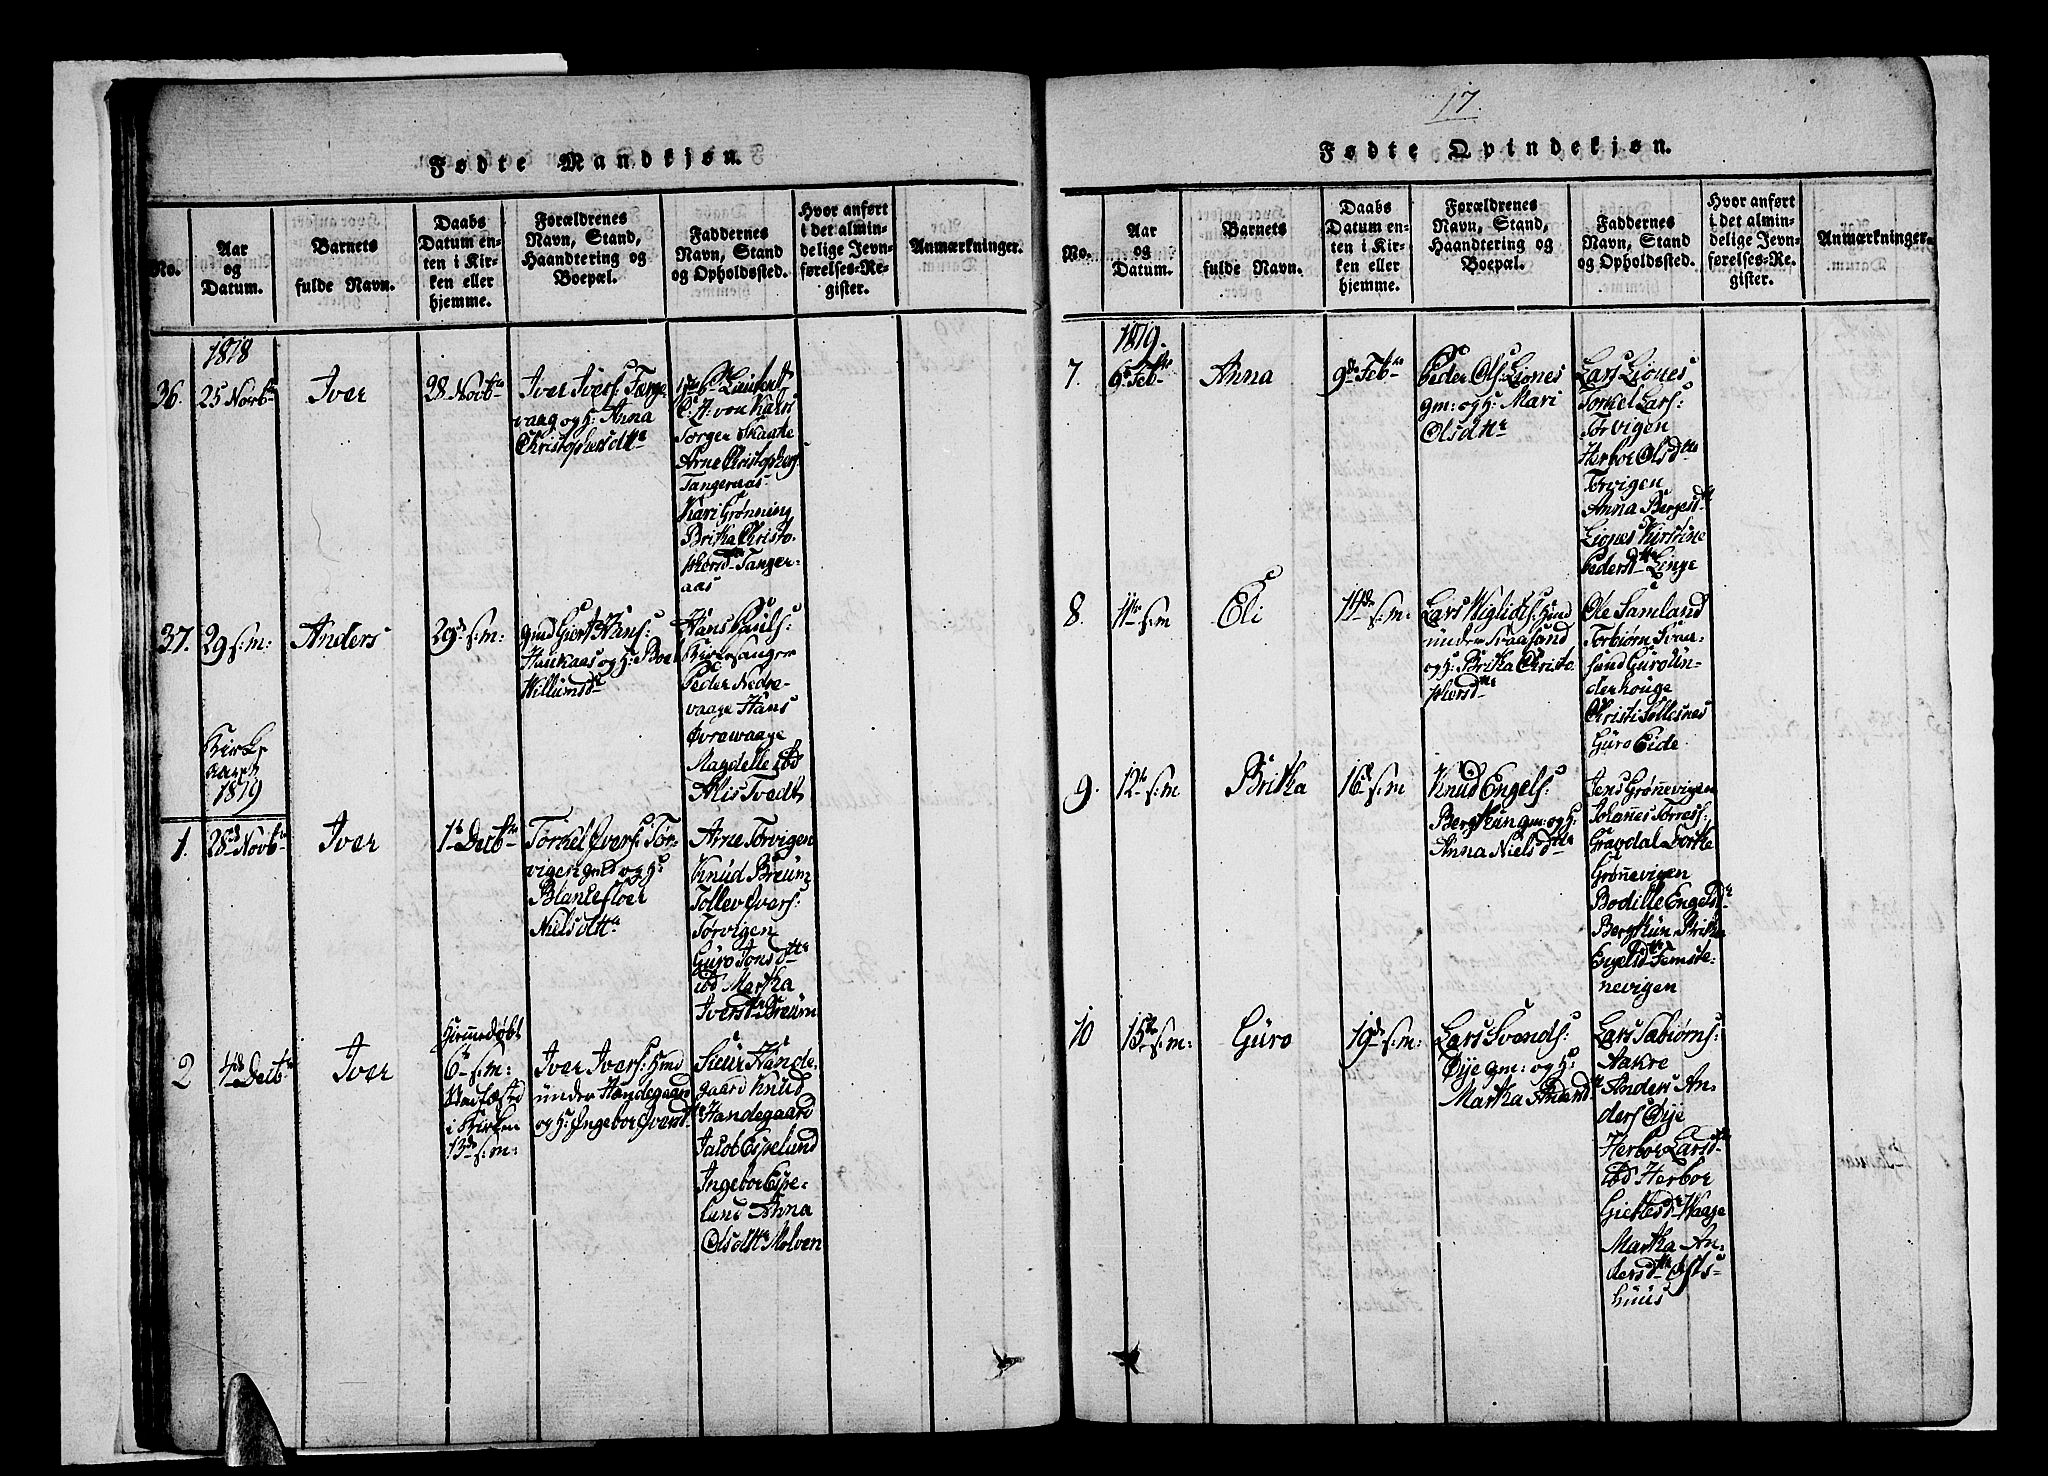 17
Fødte Mandkjøn.
No.
Aar
og
Datum.
Barnets
fulde Navn.
Daabs
Datum en-
ten i Kir-
ken eller
hjemme.
Forældrenes
Navn, Stand,
Haandtering og
Boepæl.
Faddernes
Navn, Stand
og Opholdssted.
Hvor anført
i det almin-
delige Jevn-
førelses-Re-
gister.
Anmærkninger.
1818
36.
25 Novbr
Iver
28 Novbr
Iver Ivers: Tange-
vaag og H: Anna
Christophersdttr
Laurent
C: A: von Krüs
Torger Skaate
Arne Christophers:
Tangeraas
Kari Grønning
Britha Christo-
phersd Tanger-
aas
37.
29 s: m:
Anders
29d s: m:
gmd Giert Hans:
Haukaas og H:
Willumsdr
Hans Pauls:
Kirkesanger
Peder Nedre-
vaage Hans
Øvrewaage
Magdelle ibd
Alis Tvedt
Kirke
Aaret
1819
1.
28d Novbr
Iver
1te Decbr
Torkel Ivers: Tør-
vigen gmd og H:
Blansefloer
Nielsdttr
Arne Torvigen
Knud Breum
Tollev Ivers:
Tørvigen
Guro Jonsdttr
ibd Martha
Iversd Breum
2
4de Decbr
Iver
Hiemmedøbt
6te s: m:
Stadfæsted
i Kirken
13de s: m:
Iver Ivers: Hmd
under Handegaard
og H: Ingebor Iversd
Siur Hande-
gaard Knud
Handegaard
Jacob Espelund
Ingebor Espe-
lund Anna
Olsdttr Molven
Fødte Qvindekjøn.
No.
Aar
og
Datum.
Barnets
fulde Navn.
Daabs
Datum en-
ten i Kir-
ken eller
hjemme.
Forældrenes
Navn, Stand,
Haandtering og
Boepæl.
Faddernes
Navn, Stand
og Opholdssted.
Hvor anført
i det almin-
delige Jevn-
førelses-Re-
gister.
Anmærkninger.
1819.
7.
9de Febr
Anna
9de Febr
Peder Ols: Liones
gm: og H: Mari
Olsdttr
Lars Liones
Torkel Lars:
Torvigen
Herbor Olsdttr
Torvigen
Anna Børgesdtr
Liones Kirstine
Pedersdtr Linge
8.
11te s: m
Eli
14de s: m:
Lars Wigliks: Hmd
under Svaasand
og H: Britha Christo-
phersdttr
Ole Samland
Torbiørn Svaa-
sund Guro Un-
derhouge
Christi Sollesnes
Guro Eide
9.
12te s: m
Britha
16de s: m
Knud Engels:
Bergthun gm: og H:
Anna Nielsdtr
Jens Grønnevigen
Johannes Torres:
Gravdal Dorthe
Grønnevigen
Bodille Engelsdtr
Bergthun Britha
Engelsdttr Femste-
nevigen
10
15de s: m:
Guro
19de s: m:
Lars Svends:
Øye gm: og H:
Martha Andersdtr
Lars Sabiørns:
Aakre
Anders An-
ders Øye
Herbor Larsdttr
ibd Herbor
Giertsdr Waage
Martha An-
dersdttr Ofts-
huus